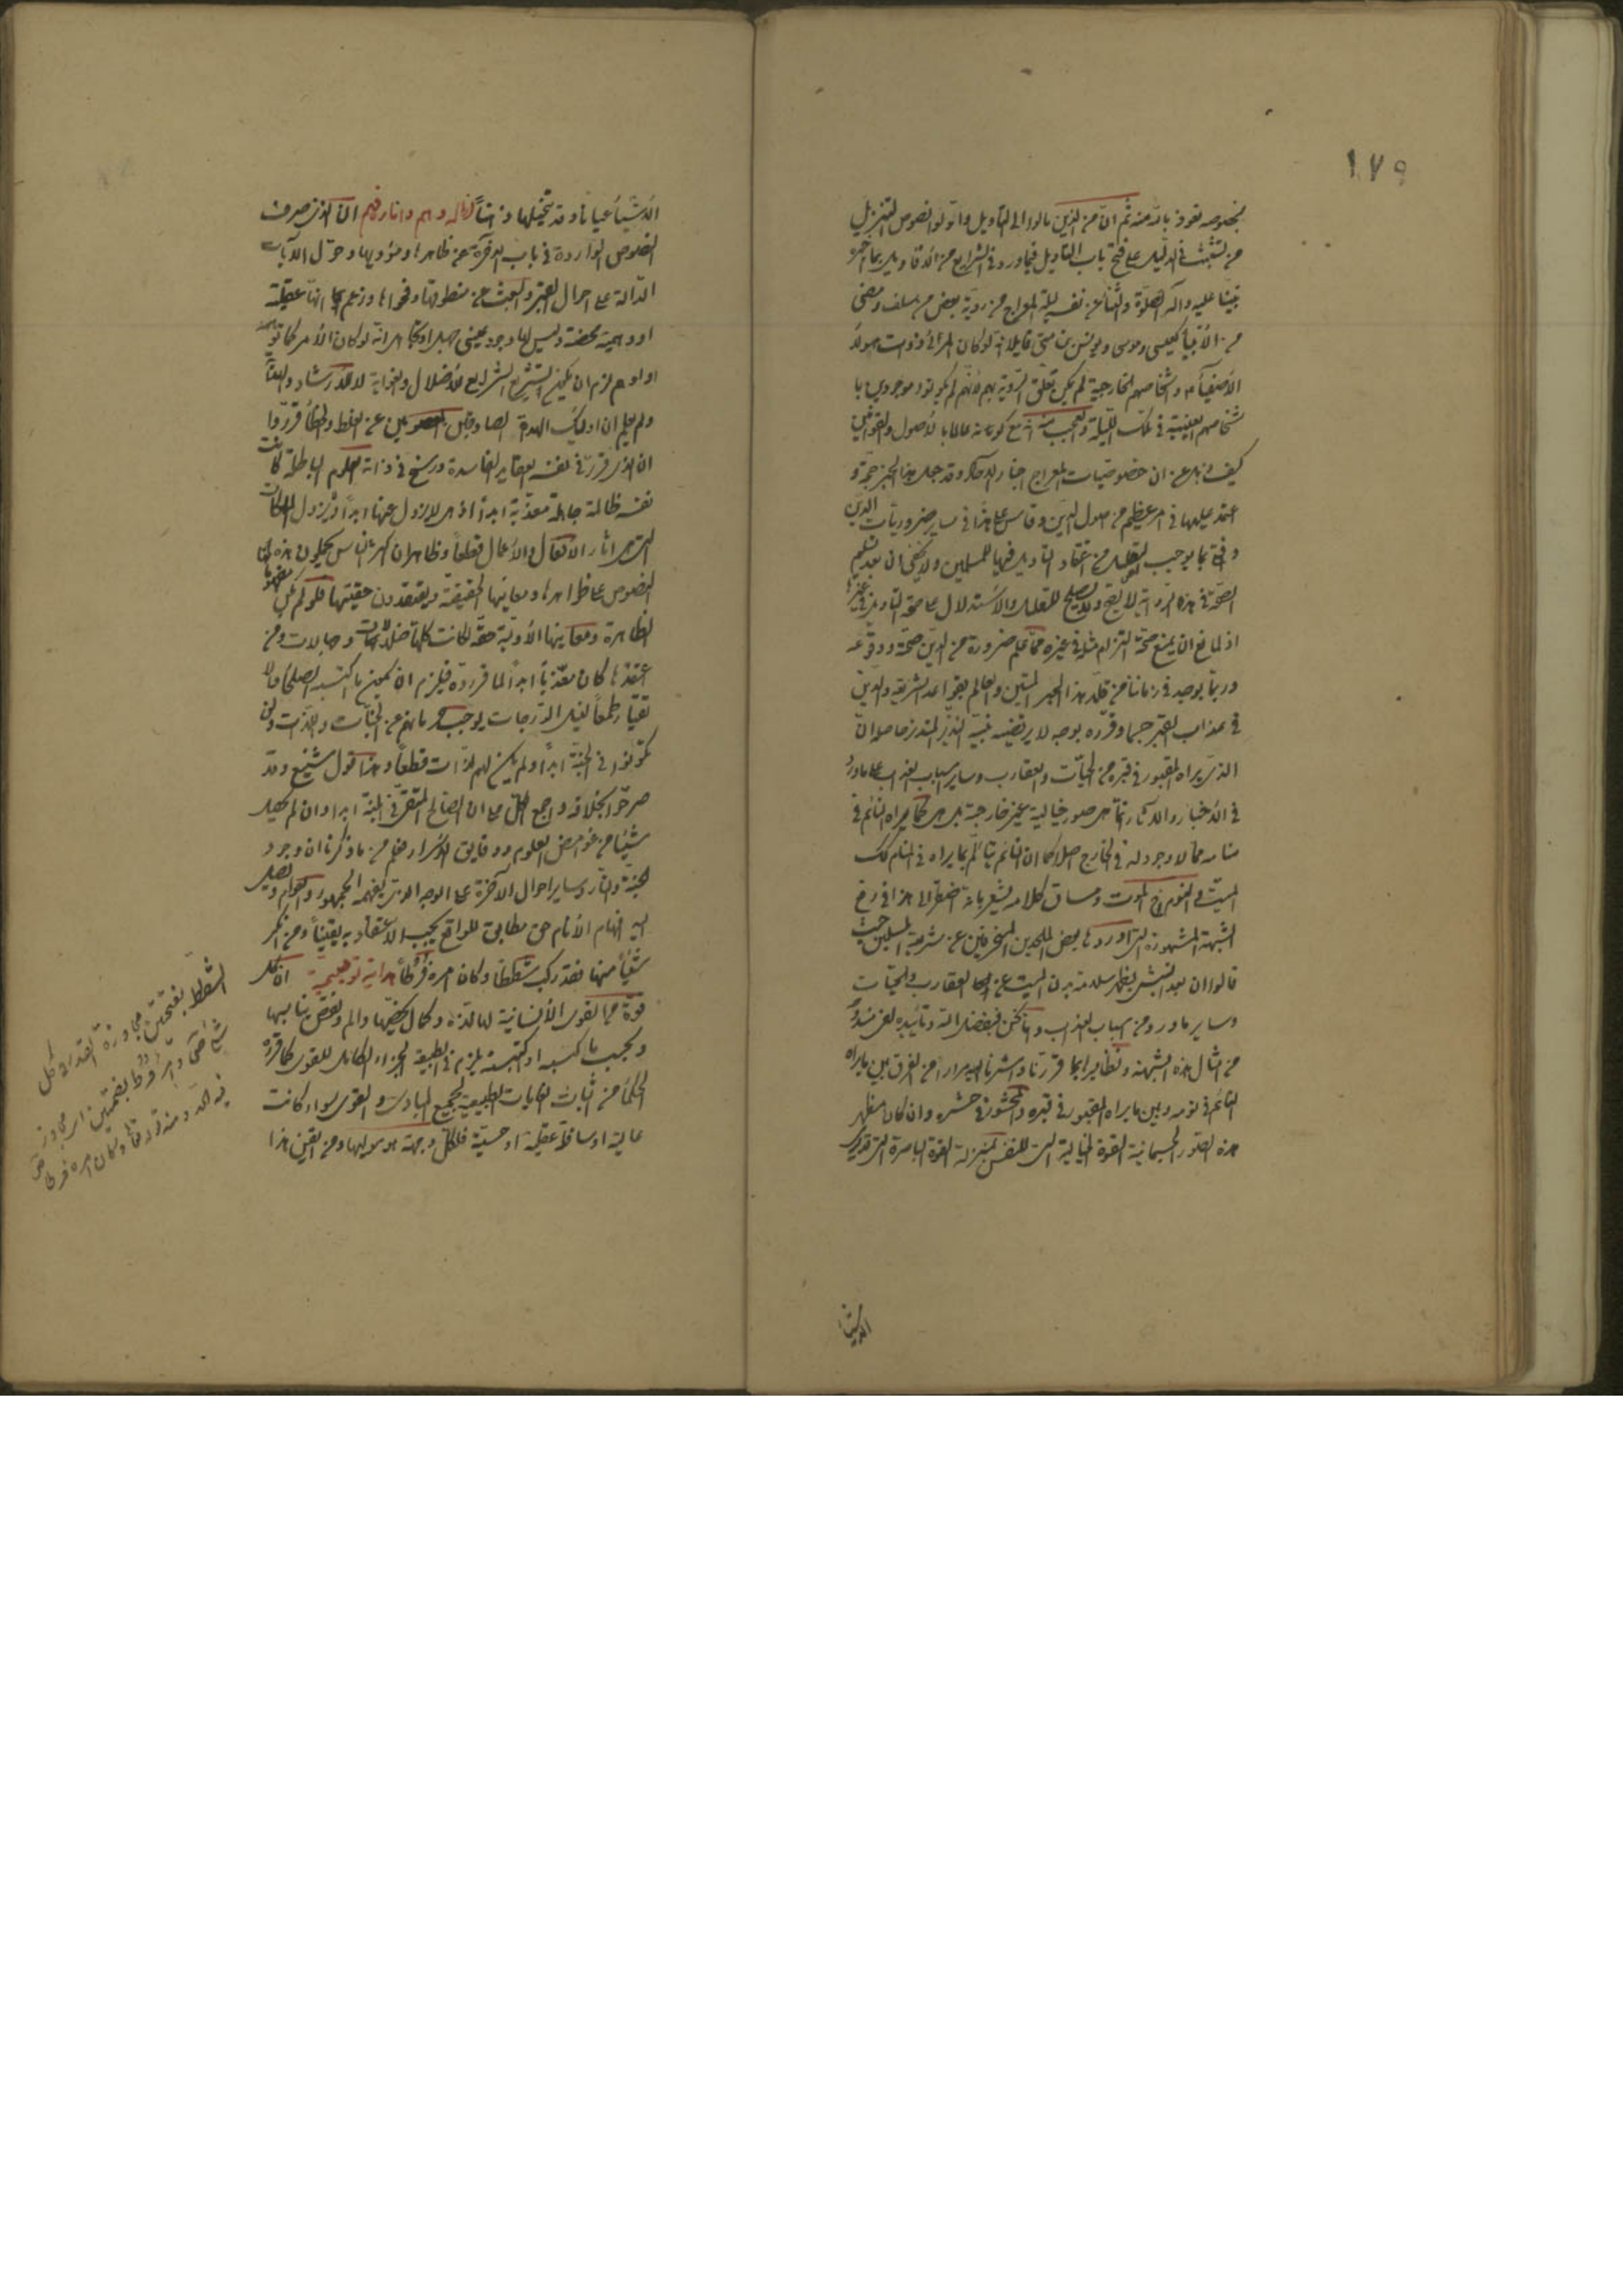 ١٧٩
بخصوصه نعوذ بالله منه ثم ان من الذين مالوا الى التاويل واوّلوا نصوص التنزيل
من تشبث في الدليل على فتح باب التاويل فيما ورد في الشرايع من الاقاويل بما اخبر
نبينا عليه واله الصلوة والثنا عن نفسه ليلة المعراج من روية بعض من سلف ومضى
من الأنبيا كعيسى وموسى ويونس بن متى قايلا انه لو كان المرائى ذوات هولاء
الأصفيا واشخاصهم الخارجية لم يكن تعلق الروية بهم لأنهم لم يكونوا موجودين با
شخاصهم العينية في تلك الليلة والعجب منه انه مع كونه عالما بالاصول والقوانين
كيف ذهل عن ان خصوصيات المعراج اخبار الاحاد وقد جعل هذا الخبر حجة و
اعتمد عليها في امر عظيم من اصول الدين وقاس على هذا في ساير ضروريات الدين
وفتح بما يوجب التقليد من اعتقاد التاويل فيها للمسلمين ولا يخفى ان بعد تسليم
الصحة في هذه الرواية لا يصح ولا يصلح للتقليد والاستدلال على صحة التاويل في غيرها
اذ لمانع ان يمنع صحة التزام مثله في غيره مما علم ضرورة من الدين صحته ووقوعه
وربما يوجد في زماننا من قلد هذا الحبر المتين والعالم بقواعد الشريعة والدين
في عذاب القبر جسما وقرره بوجه لا يرتضيه نبينا النذير المنذر حاصله ان
الذي يراه المقبور في قبره من الحيات والعقارب وساير اسباب العذاب على ما ورد
في الأخبار والاثار انما هى صور خيالية غير خارجية بل هى كما يراه النائم في
منامه مما لا وجود له في الخارج اصلا كما ان النائم يتألم بما يراه في المنام كك
الميت فى النوم اخ الموت ومساق كلامه يشعر بانه اضطر الى هذا في رفع
الشبهة المشهورة التى اوردها بعض الملحدين المنحرفين عن شريعة المسلمين حيث
قالوا ان بعد النبش يظهر سلامة بدن الميت عن العقارب والحيات
وساير ما ورد من اسباب العذاب وها نحن بفضل الله وتأييده لغي مندوحة
من امثال هذه الشبهة ونظايرها بما قررنا واشرنا اليه مرارا من الفرق بين ما يراه
النائم في نومه وبين ما يراه المقبور في قبره والمحشور في حشره وان كان مظهر
هذه الصور الجسمانية القوة الخيالية التى للنفس بمنزلة القوة الباصرة التى تدرك
الاشيا
الأشيأ عيانا وقد تخيلها ذهنا ازالة وهم وانارة فهم ان الذى صرف
النصوص الواردة في باب الاخرة عن ظاهرها ومؤديها وحول الآيات
الدالة على احوال القبر والبعث عن منطوقها وفحواها وزعم انها عقلية
او وهمية محضة وليس لها وجود عينى جهل او تجاهل انه لو كان الأمر كما توهمه
او اوهم لزم ان يكون التشريع الشرايع للاضلال والغواية لا للارشاد والهداية
ولم يعلم ان اولئك الهداة الصادقين المعصومين عن الغلط والخطأ قرروا
ان الذى قرر في نفسه العقايد الفاسدة ورسخ في ذاته العلوم الباطلة كانت
نفسه ظالمة جاهلة معذبة ابداً اذ هى لا يزول عنها ابداً ويزول الملكات
التى هى اثار الافعال والأعمال قطعا وظاهر ان اكثر الناس يحملون هذه
النصوص على ظواهرها ومعانيها الحقيقة ويعتقدون حقيتها فلو لم يكن مفهوماتها
الظاهرة ومعانيها الأولية حقة لكانت كلها ضلالات وجهالات ومن
اعتقدها كان معذباً ابداً لما قرروه فيلزم ان يكون ما اكتسبه الصلحا والا
تقيا طمعاً لنيل الدرجات يوجب حرمانهم عن الجنات واللذات ولن
يكونوا فى الجنة ابداً ولم يكن لهم لذات قطعاً وهذا قول شنيع وقد
صرحوا بخلافه واجمع الكل على ان الصالح المتقى في الجنة ابدا وان لم يحصل
شيئا من غوامض العلوم ودقايق الاسرار فعلم من ما ذكرنا ان وجود
الجنة والنار وساير احوال الآخرة على الوجه الذى يفهمه الجمهور والعوام ويصل
اليه افهام الأنام حق مطابق للواقع يجب الاعتقاد به يقيناً ومن انكر
شيئاً منها فقد ركب شططا وكان امره فرُطاً هداية توضيحية ان لكل
قوة من القوى الأنسانية لها لذة وكمال يخصها والم ونقص يناسبها
وبحسب ما كسبه او اكتسبته يلزم في الطبيعة الجزاء الكامل للقوى كما قرره
الحكما من اثبات الغايات الطبيعية لجميع المبادى والقوى سواء كانت
عالية او سافلة عقلية او حسية فلكل وجهة هو موليها ومن ايقن هذا
الشطط بفتحتين مجاوزة القدر فى كل
شئ